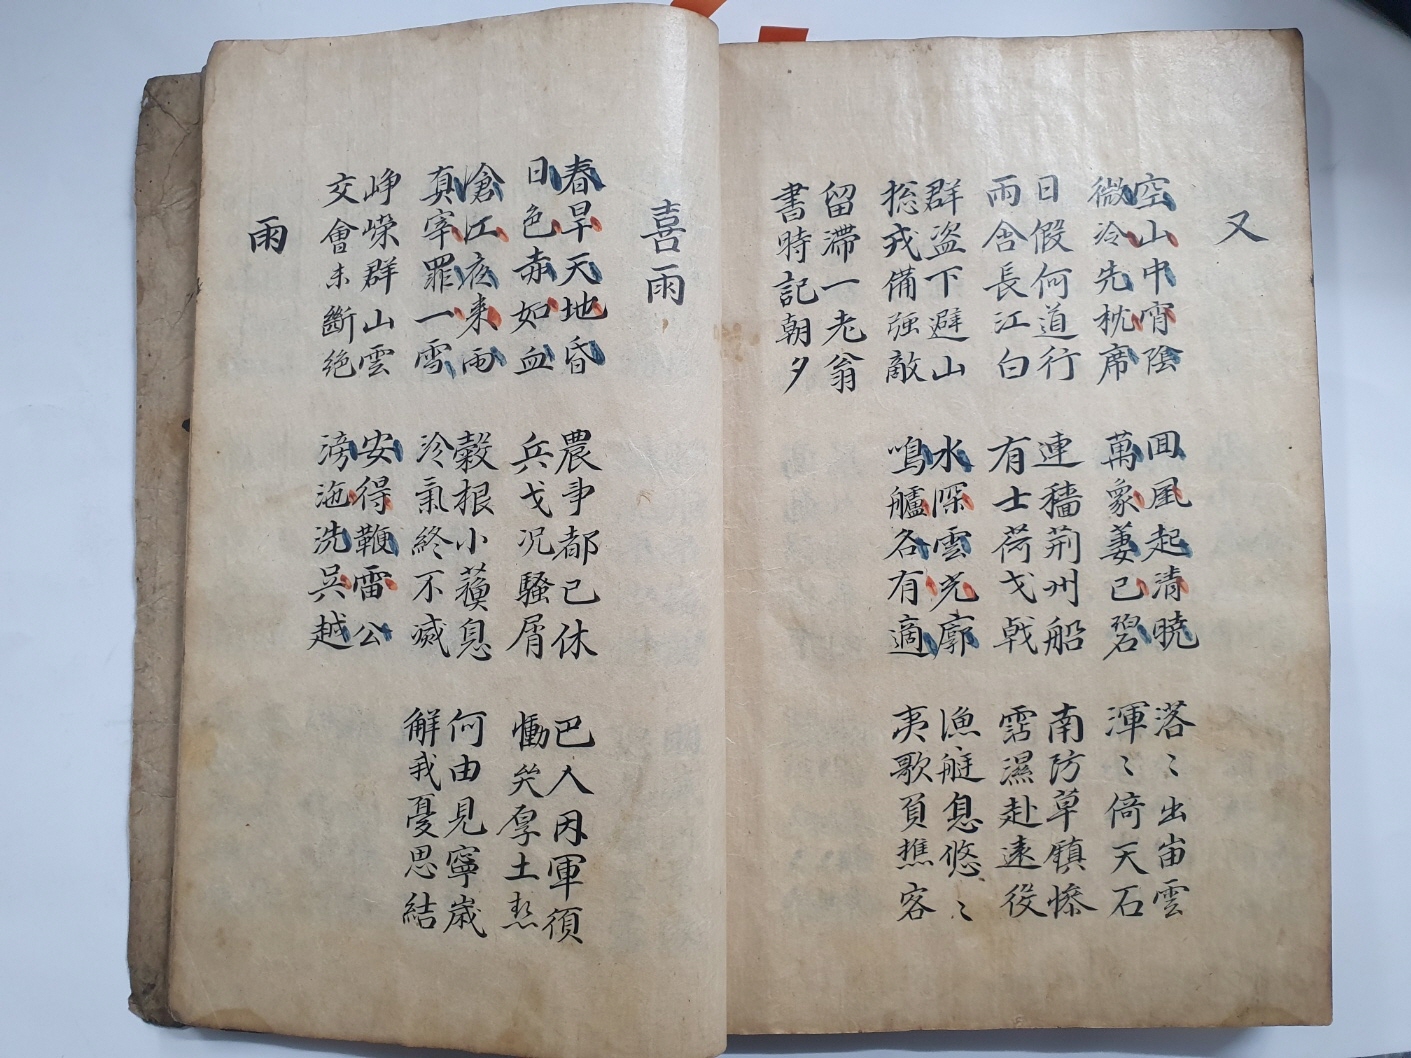 又
空山中宵陰
微冷先枕席
囬風起清曉
萬象萋已碧
落〻出岫雲
渾〻倚天石
日假何道行
雨含長江白
連檣荆州船
有士荷戈戟
南防草鎮慘
霑濕赴遠役
群盜下避山
捴戎備强敵
水深雲光廓
鳴艫各有適
漁艇息悠〻
夷歌負樵客
留滯一老翁
書時記朝夕
喜雨
春旱天地昏
日色赤如血
農事都已休
兵戈况騷屑
巴人困軍須
慟哭厚土熱
滄江夜來雨
真宰罪一雪
穀根小蘓息
沴氣終不滅
何由見寧歲
解我憂思結
崢嶸群山雲
交會未斷絕
安得鞭雷公
滂沲洗吳越
雨